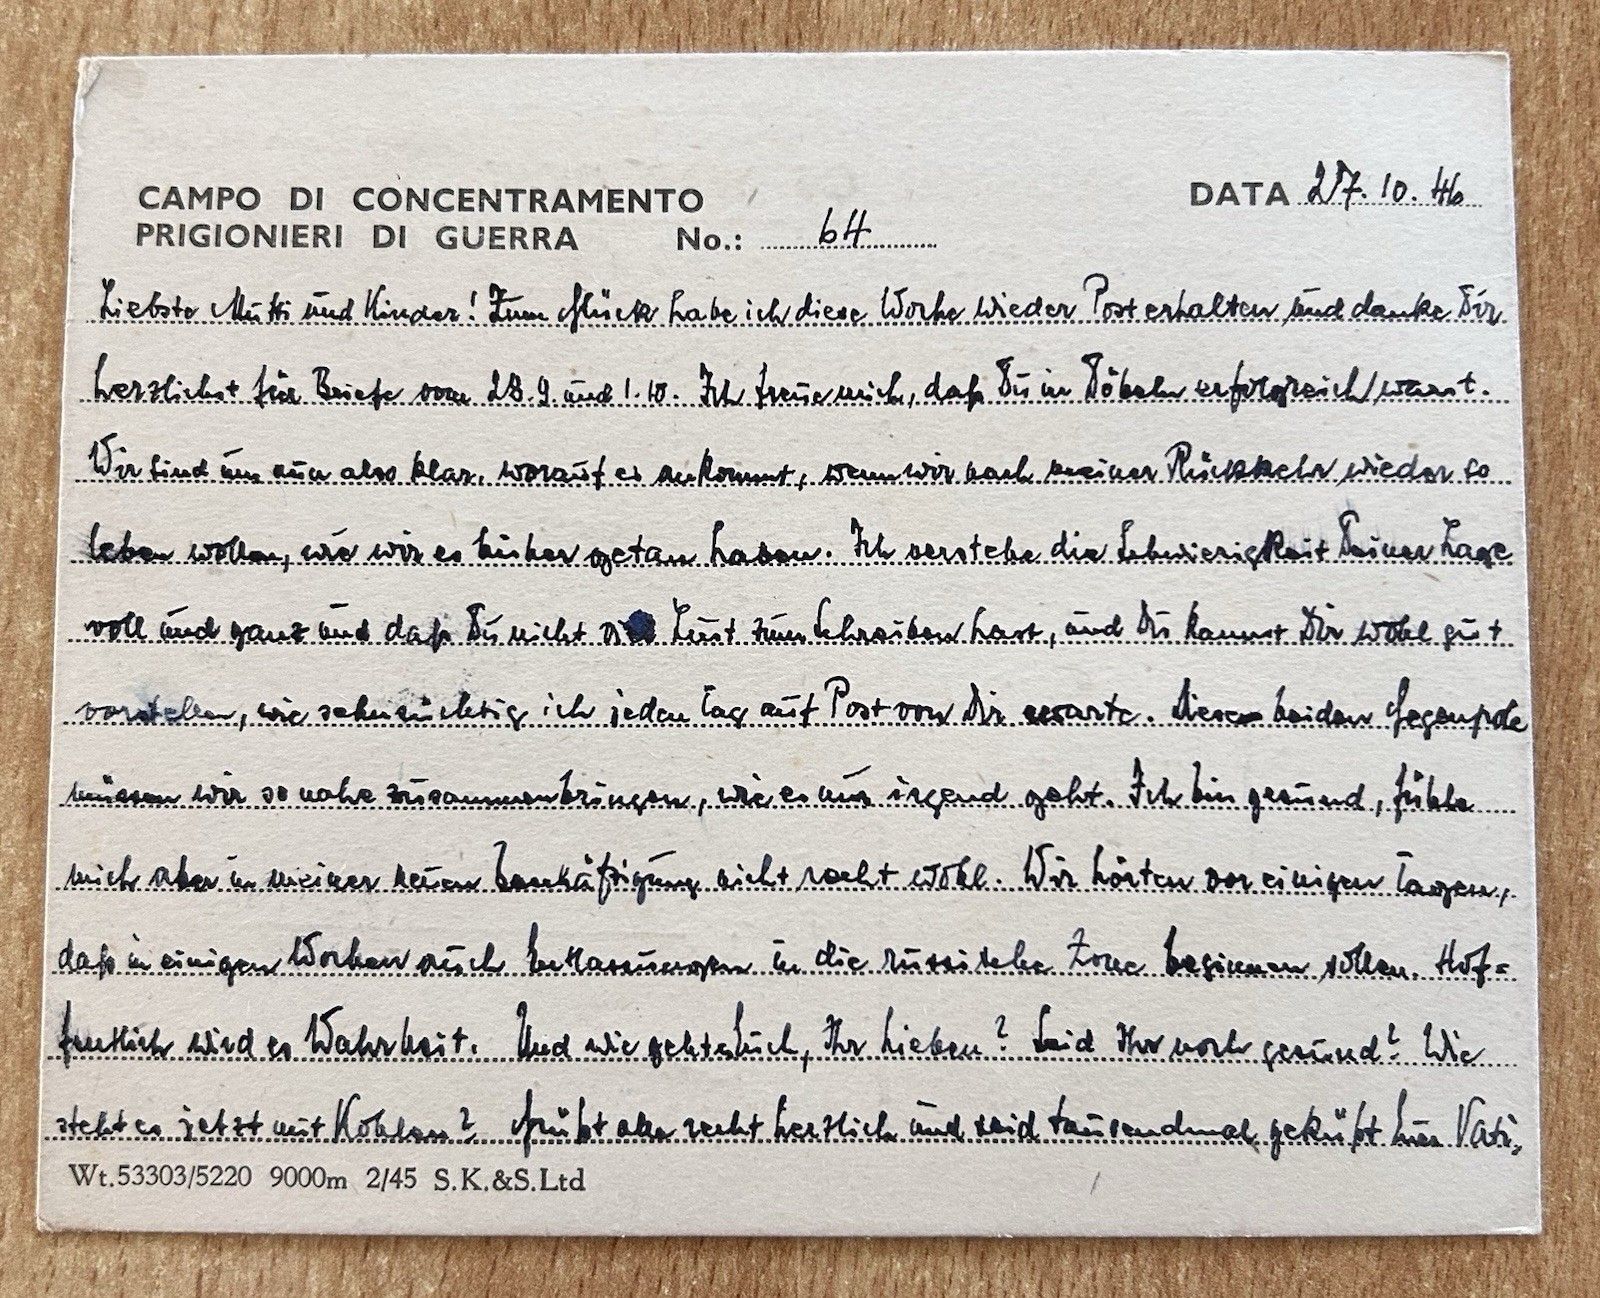 CAMPO DI CONCENTRAMENTO
PRIGIONIERI DI GUERRA No.: 64
DATA 27.10.46
Liebste Mutti und Kinder! Zum Glück habe ich diese Woche wieder Post erhalten und danke Dir
herzlichst für Briefe vom 28.9 und 1.10. Ich freue mich, daß Du in Döbeln erfolgreich warst.
Wir sind uns nun also klar, worauf es ankommt, wenn wir nach meiner Rückkehr wieder so
leben wollen, wie wir es bisher getan haben. Ich verstehe die Schwierigkeit Deiner Lage
voll und ganz und daß Du nicht Lust zum Schreiben hast, und Du kannst Dir wohl gut
vorstellen, wie sehnsüchtig ich jeden Tag auf Post von Dir warte. Diese beiden Gegenpole
müssen wir so nahe zusammenbringen, wie es nur irgend geht. Ich bin gesund, fühle
mich aber in meiner neuen Beschäftigung nicht recht wohl. Wir hörten vor einigen Tagen,
daß in einigen Wochen auch Entlassungen in die russische Zone beginnen sollen. Hof=
fentlich wird es Wahrheit. Und wie geht es Euch, Ihr Lieben? Seid Ihr noch gesund? Wie
steht es jetzt mit Kohlen? Grüßt alle recht herzlich und seid tausendmal geküßt von Vati.
Wt.53303/5220 9000m 2/45 S.K.&S.Ltd